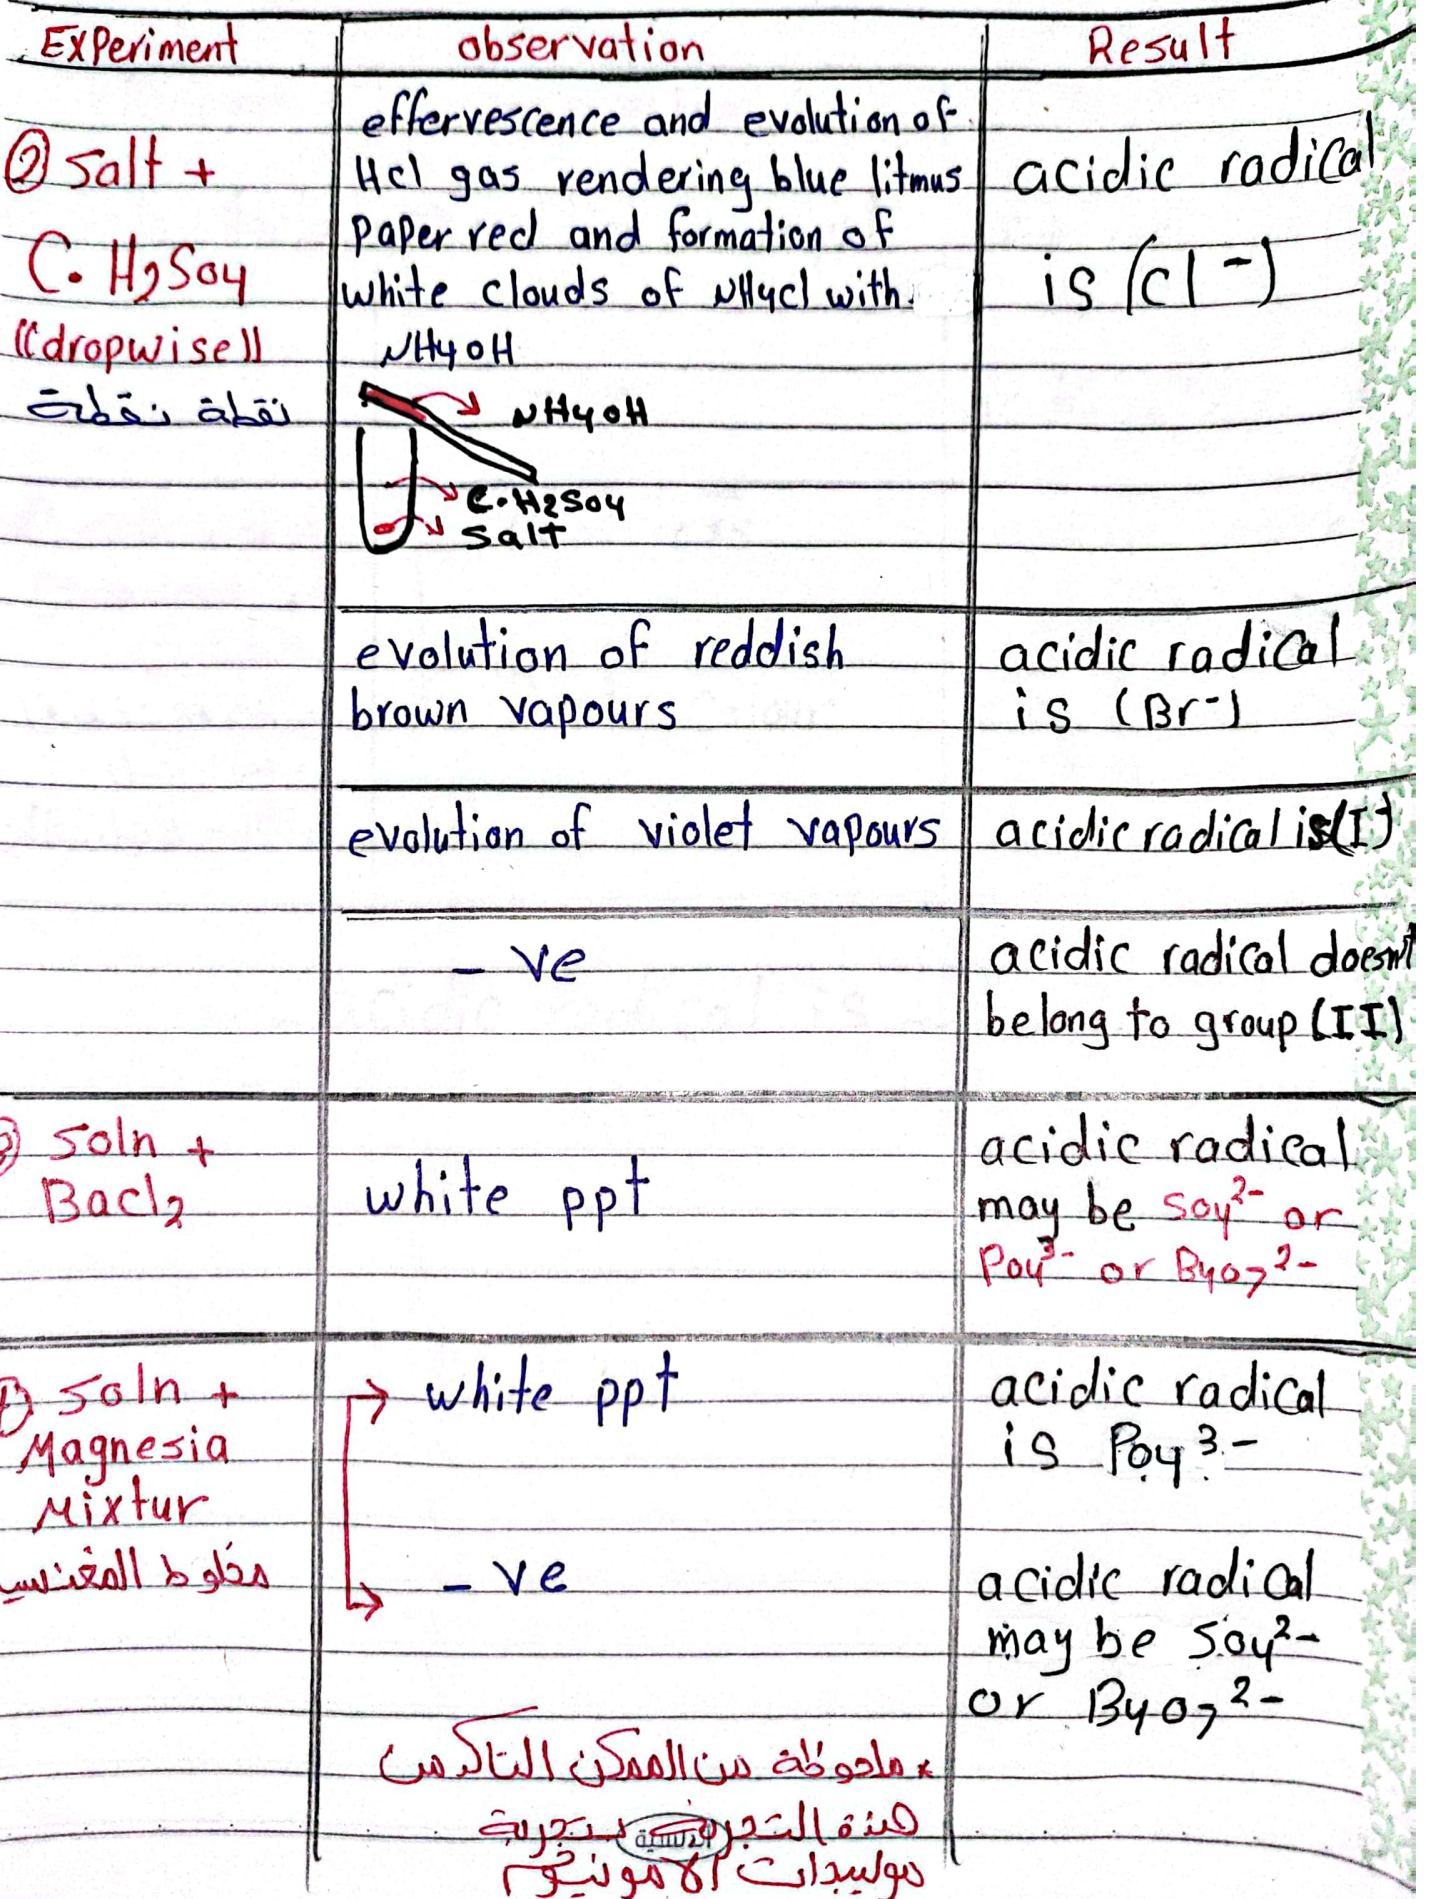 Experiment
observation
Result
② Salt +
C. H2So4
((dropwise))
نقطة نقطة
effervescence and evolution of
Hcl gas rendering blue litmus
paper red and formation of
white clouds of NH4cl with
NH4OH
NH4OH
C. H2So4
Salt
acidic radical
is (cl-)
evolution of reddish
brown vapours
acidic radical
is (Br-)
evolution of violet vapours
acidic radical is (I-)
- ve
acidic radical doesn't
belong to group (II)
Soln +
Bacl2
white ppt
acidic radical
may be So4 2- or
Po4 3- or B4O7 2-
Soln +
Magnesia
Mixtur
white ppt
acidic radical
is Po4 3-
- ve
acidic radical
may be So4 2-
or B4O7 2-
* ملحوظة من الممكن التاكد من
هذة التجربة بتجربة
موليبدات الامونيوم